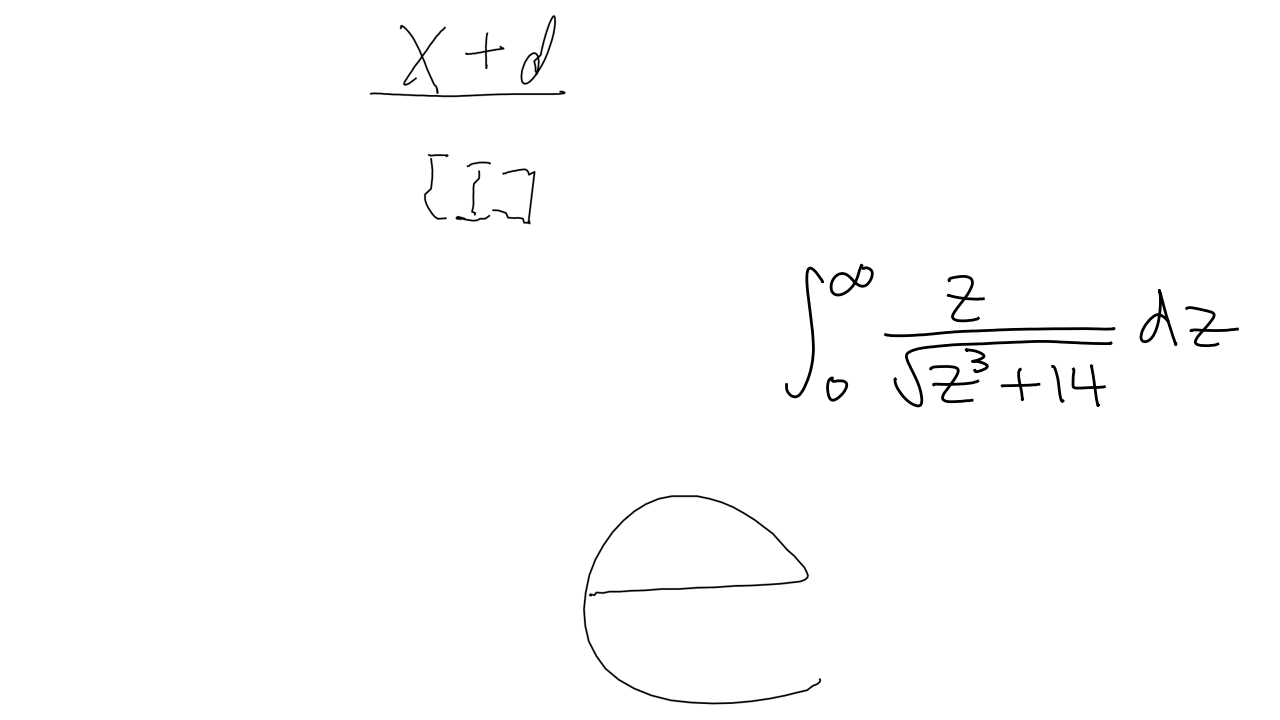 x + d
[I]
∫_0^∞ z / √(z³ + 14) dz
e